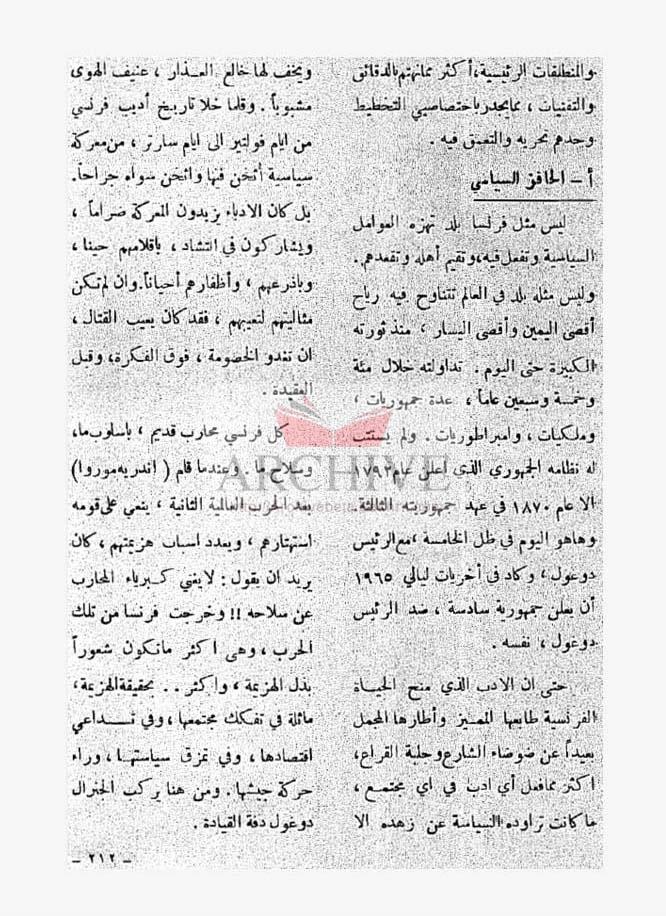 والمنطلقات الرئيسية، أكثر مما نهتم بالدقائق
والتقنيات ، مما يجدر باختصاصيي التخطيط
وحدهم تحريه والتعمق فيه .
أ – الحافز السياسي
ليس مثل فرنسا بلد تهزه العوامل
السياسية وتفعل فيه، وتقيم أهله وتقعدهم .
وليس مثله بلد في العالم تتناوح فيه رياح
أقصى اليمين وأقصى اليسار ، منذ ثورته
الكبيرة حتى اليوم . تداولته خلال مئة
وخمسة وسبعين عاماً ، عدة جمهوريات ،
وملكيات ، وامبراطوريات . ولم يستتب
له نظامه الجمهوري الذي أعلن عام ١٧٩٢
الا عام ١٨٧٠ في عهد جمهوريته الثالثة.
وهاهو اليوم في ظل الخامسة ، مع الرئيس
دوغول ، وكاد في أخريات ليالي ١٩٦٥
أن يعلن جمهورية سادسة ، ضد الرئيس
دوغول ، نفسه .
حتى ان الادب الذي منح الحياة
الفرنسية طابعها المميز وأطارها المجمل
بعيداً عن ضوضاء الشارع وحلبة القراع،
اكثر مما فعل أي ادب في اي مجتمع ،
ما كانت تراوده السياسة عن زهده الا
ويخف لها خالع العذار ، عنيف الهوى
مشبوباً . وقلما خلا تاريخ أديب فرنسي
من ايام فولتير الى ايام سارتر ، من معركة
سياسية أثخن فيها واثخن سواء جراحاً.
بل كان الادباء يزيدون المعركة ضراماً ،
ويشاركون في التشاد ، باقلامهم حينا ،
وباذرعهم ، وأظفارهم أحياناً. وان لم تكن
مثاليتهم لتعيبهم ، فقد كان يعيب القتال ،
ان تغدو الخصومة ، فوق الفكرة، وقبل
العقيدة .
كل فرنسي محارب قديم ، باسلوب ما،
وسلاح ما . وعندما قام ( اندريه موروا )
بعد الحرب العالمية الثانية ، ينعي على قومه
استهتارهم ، ويعدد اسباب هزيمتهم ، كان
يريد ان يقول : لا يغني كبرياء المحارب
عن سلاحه !! وخرجت فرنسا من تلك
الحرب ، وهى اكثر ماتكون شعوراً
بذل الهزيمة ، واكثر .. بحقيقة الهزيمة،
ماثلة في تفكك مجتمعها ، وفي تداعي
اقتصادها ، وفي تمزق سياستها ، وراء
حركة جيشها . ومن هنا يركب الجنرال
دوغول دفة القيادة .
ARCHIVE
– ٢١٢ –